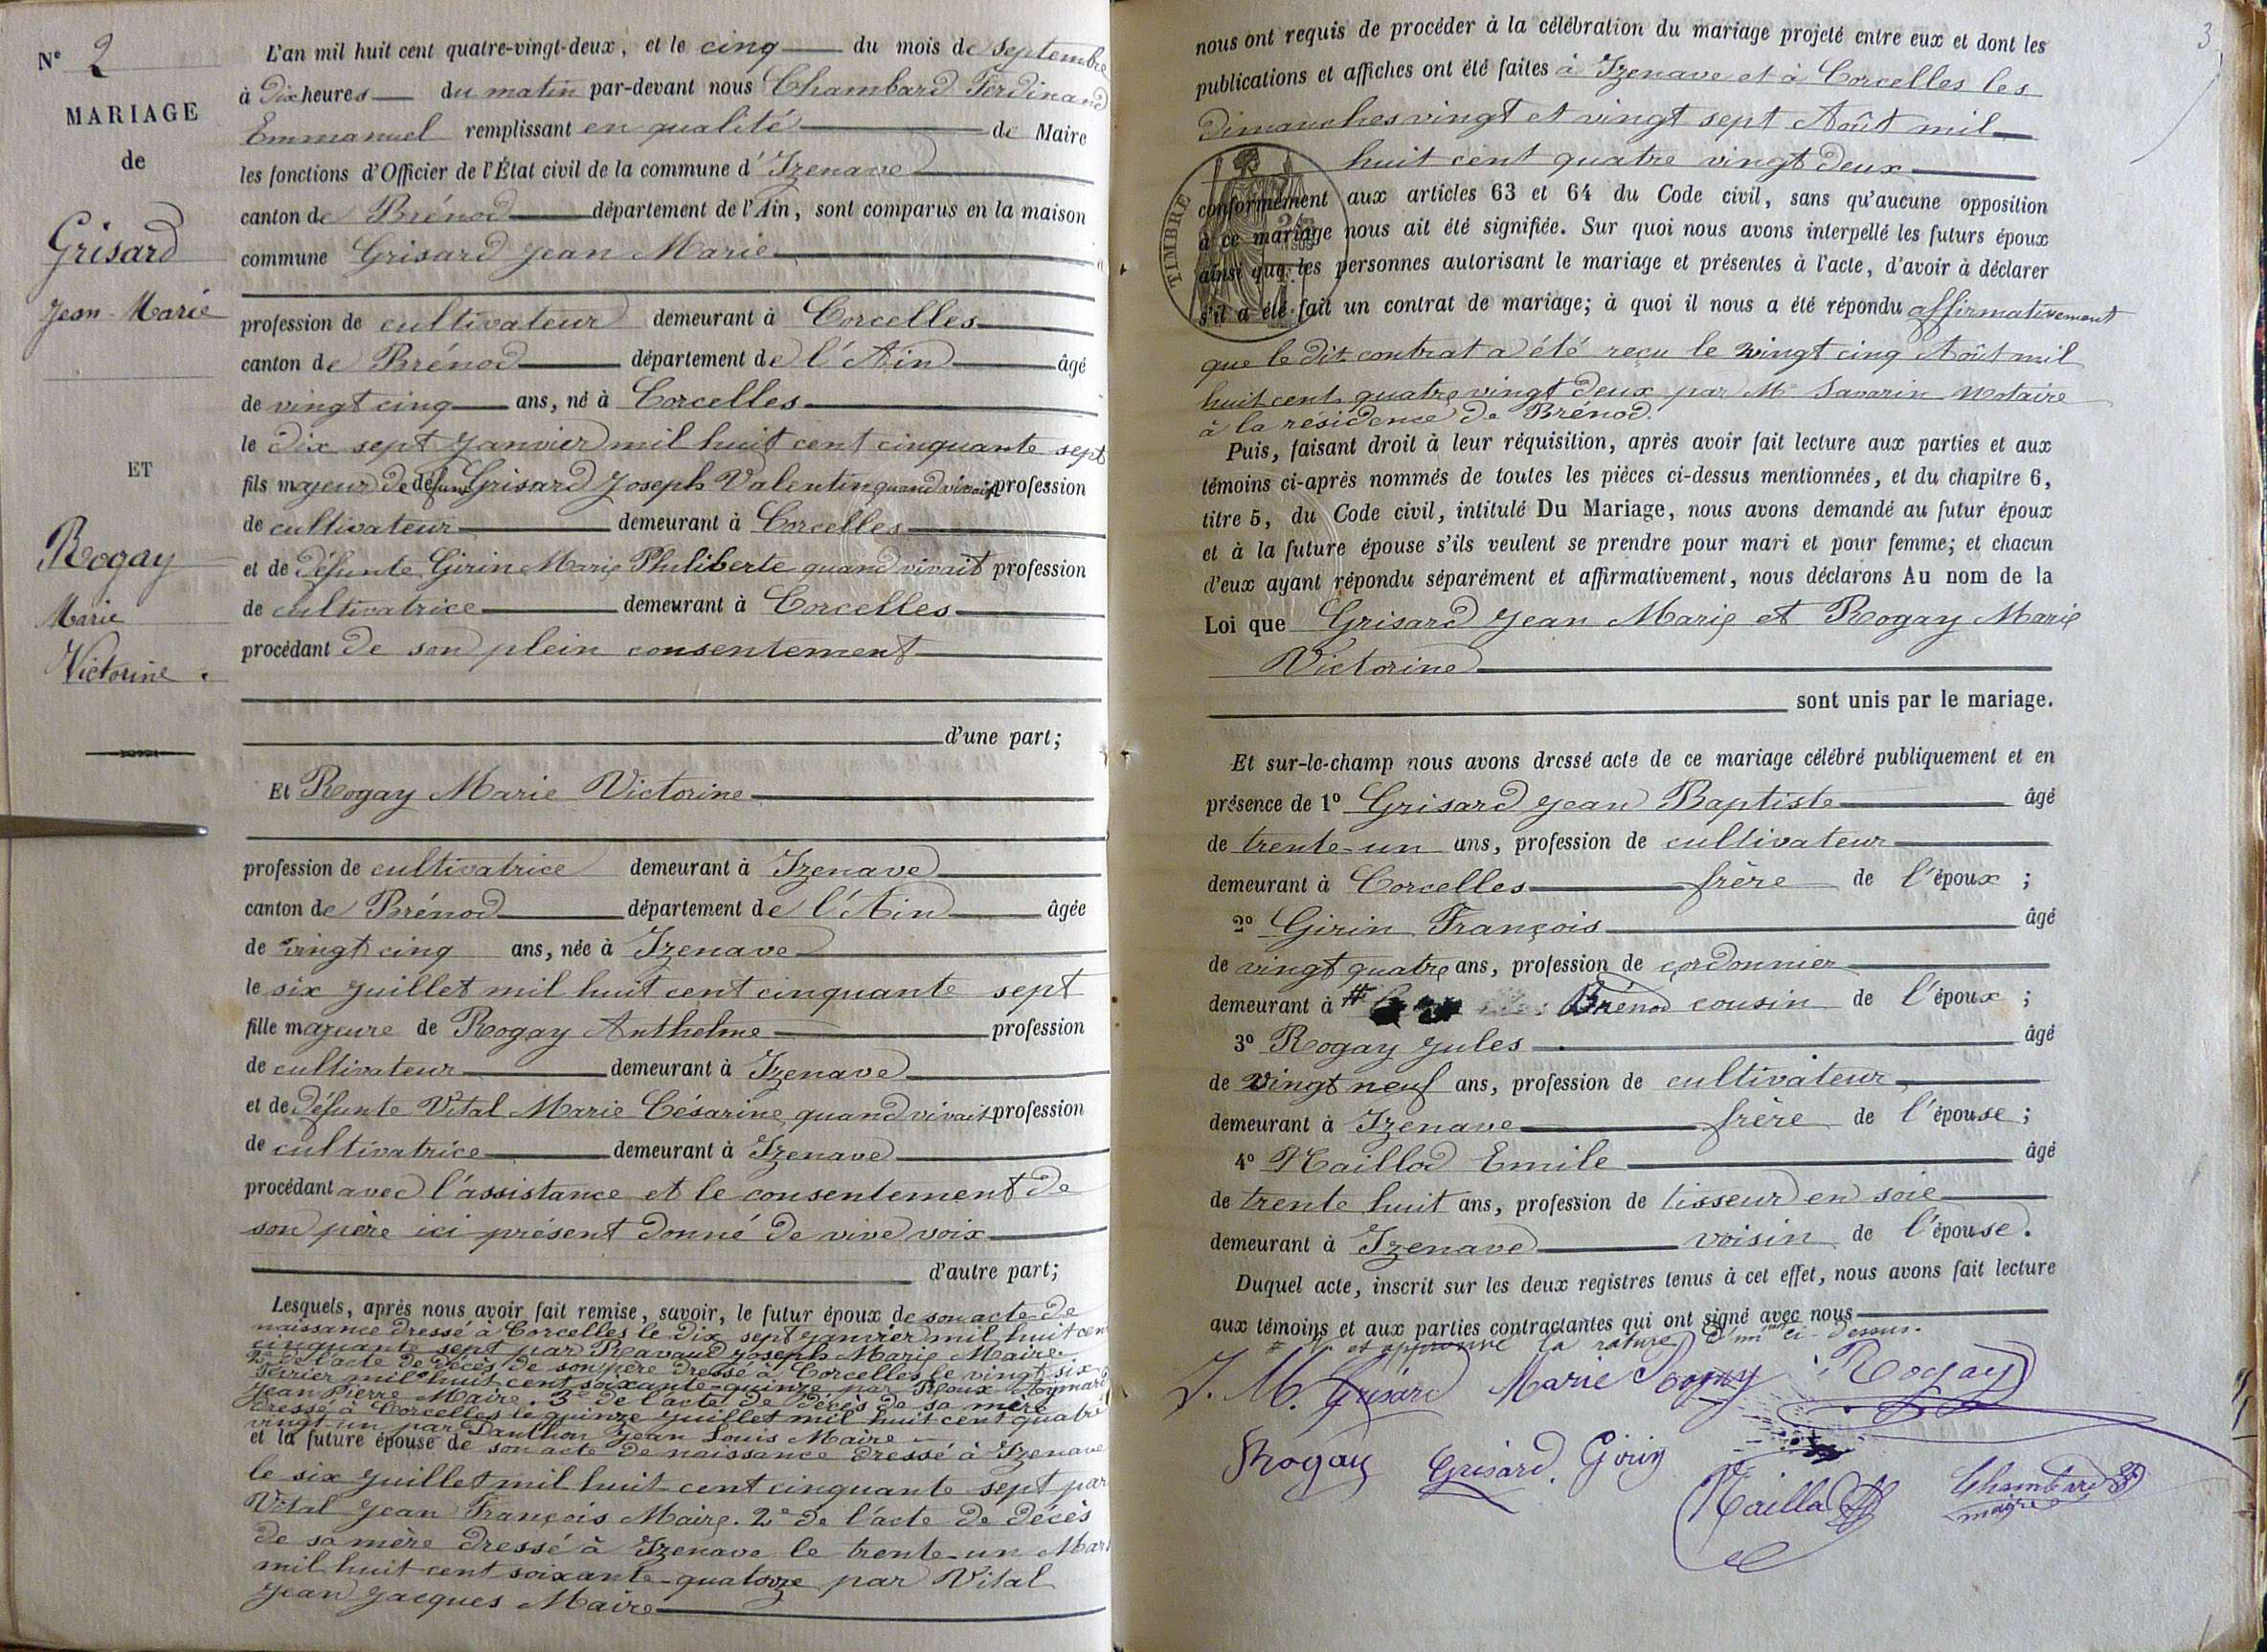 N° 2
MARIAGE
de
Grisard
Jean-Marie
ET
Rogay
Marie
Victorine
L'an mil huit cent quatre-vingt-deux, et le cinq du mois de Septembre
à Dix heures du matin par-devant nous Chambard Ferdinand
Emmanuel remplissant en qualité de Maire
les fonctions d'Officier de l'État civil de la commune d'Izenave
canton de Brénod département de l'Ain, sont comparus en la maison
commune Grisard Jean Marie
profession de cultivateur demeurant à Corcelles
canton de Brénod département de l'Ain âgé
de vingt cinq ans, né à Corcelles
le dix sept Janvier mil huit cent cinquante sept
fils majeur de défunt Grisard Joseph Valentin quand vivait profession
de cultivateur demeurant à Corcelles
et de défunte Girin Marie Philiberte quand vivait profession
de cultivatrice demeurant à Corcelles
procédant de son plein consentement
d'une part;
Et Rogay Marie Victorine
profession de cultivatrice demeurant à Izenave
canton de Brénod département de l'Ain âgée
de vingt cinq ans, née à Izenave
le six Juillet mil huit cent cinquante sept
fille majeure de Rogay Anthelme profession
de cultivateur demeurant à Izenave
et de défunte Vital Marie Césarine quand vivait profession
de cultivatrice demeurant à Izenave
procédant avec l'assistance et le consentement de
son père ici présent donné de vive voix
d'autre part;
Lesquels, après nous avoir fait remise, savoir, le futur époux de son acte de
naissance dressé à Corcelles le dix sept Janvier mil huit cent
cinquante sept par Ravaud Joseph Marie Maire.
2° de l'acte de décès de son père dressé à Corcelles le vingt six
Février mil huit cent soixante-quinze par Roux Aymard
Jean Pierre Maire. 3° de l'acte de décès de sa mère
dressé à Corcelles le quinze Juillet mil huit cent quatre
vingt un par Panthon Jean Louis Maire
et la future épouse de son acte de naissance dressé à Izenave
le six Juillet mil huit cent cinquante sept par
Vital Jean François Maire. 2° de l'acte de décès
de sa mère dressé à Izenave le trente-un Mars
mil huit cent soixante-quatorze par Vital
Jean Jacques Maire
3
nous ont requis de procéder à la célébration du mariage projeté entre eux et dont les
publications et affiches ont été faites à Izenave et à Corcelles les
dimanches vingt et vingt sept Août mil
huit cent quatre vingt deux
TIMBRE
conformément aux articles 63 et 64 du Code civil, sans qu'aucune opposition
à ce mariage nous ait été signifiée. Sur quoi nous avons interpellé les futurs époux
ainsi que les personnes autorisant le mariage et présentes à l'acte, d'avoir à déclarer
s'il a été fait un contrat de mariage; à quoi il nous a été répondu affirmativement
que le dit contrat a été reçu le vingt cinq Août mil
huit cent quatre vingt deux par Me Savarin Notaire
à la résidence de Brénod.
Puis, faisant droit à leur réquisition, après avoir fait lecture aux parties et aux
témoins ci-après nommés de toutes les pièces ci-dessus mentionnées, et du chapitre 6,
titre 5, du Code civil, intitulé Du Mariage, nous avons demandé au futur époux
et à la future épouse s'ils veulent se prendre pour mari et pour femme; et chacun
d'eux ayant répondu séparément et affirmativement, nous déclarons Au nom de la
Loi que Grisard Jean Marie et Rogay Marie
Victorine
sont unis par le mariage.
Et sur-le-champ nous avons dressé acte de ce mariage célébré publiquement et en
présence de 1° Grisard Jean Baptiste âgé
de trente-un ans, profession de cultivateur
demeurant à Corcelles frère de l'époux;
2° Girin François âgé
de vingt quatre ans, profession de cordonnier
demeurant à # Brénod cousin de l'époux;
3° Rogay Jules âgé
de vingt neuf ans, profession de cultivateur
demeurant à Izenave frère de l'épouse;
4° Maillod Emile âgé
de trente huit ans, profession de tisseur en soie
demeurant à Izenave voisin de l'épouse.
Duquel acte, inscrit sur les deux registres tenus à cet effet, nous avons fait lecture
aux témoins et aux parties contractantes qui ont signé avec nous
# et approuvé la rature d'un mot ci-dessus.
J. M. Grisard Marie Rogay Rogay
Rogay Grisard. Girin Maillod Chambard
maire